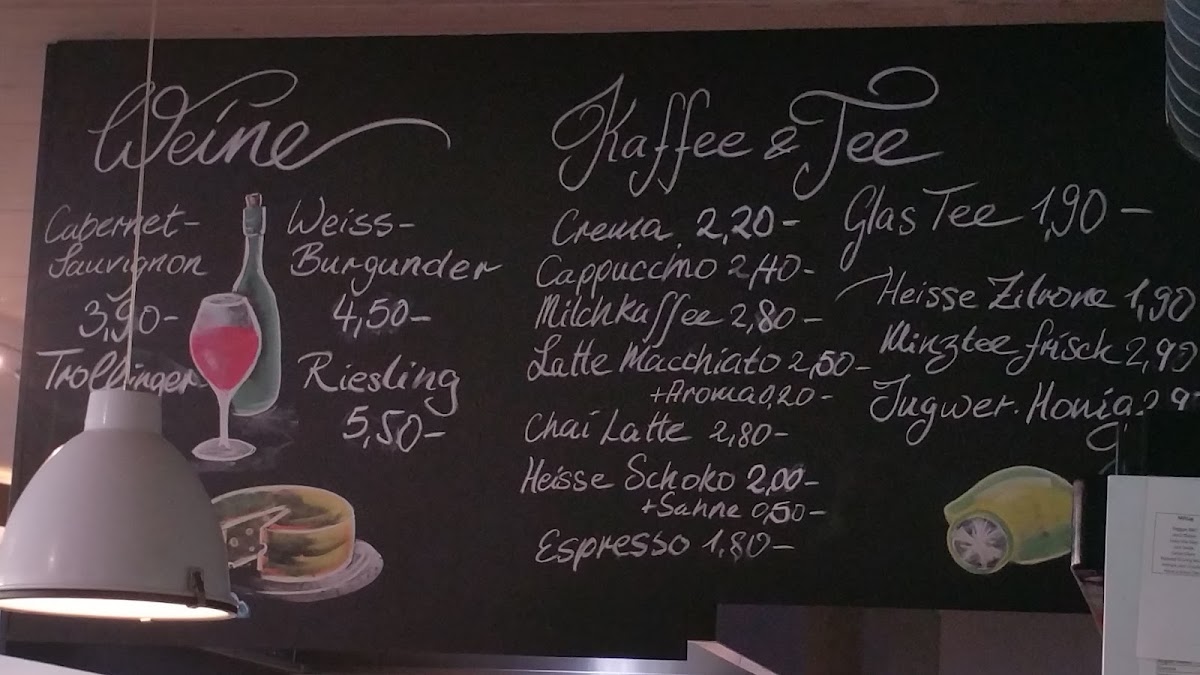 Weine
Cabernet-
Sauvignon
3,90-
Trollinger
Weiss-
Burgunder
4,50-
Riesling
5,50-
Kaffee & Tee
Crema 2,20-
Cappuccino 2,40-
Milchkaffee 2,80-
Latte Macchiato 2,50-
+Aroma 0,20-
Chai Latte 2,80-
Heisse Schoko 2,00-
+Sahne 0,50-
Espresso 1,80-
Glas Tee 1,90-
Heisse Zitrone 1,90
Minztee frisch 2,90
Jngwer. Honig